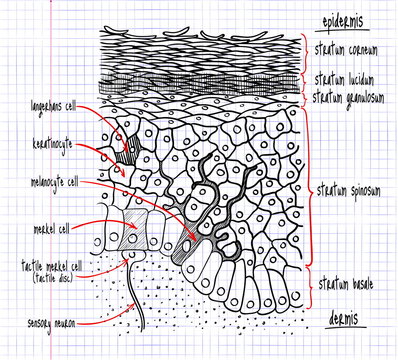 epidermis
stratum corneum
stratum lucidum
stratum granulosum
langerhans cell
keratinocyte
melanocyte cell
stratum spinosum
merkel cell
tactile merkel cell
(tactile disc)
stratum basale
dermis
sensory neuron